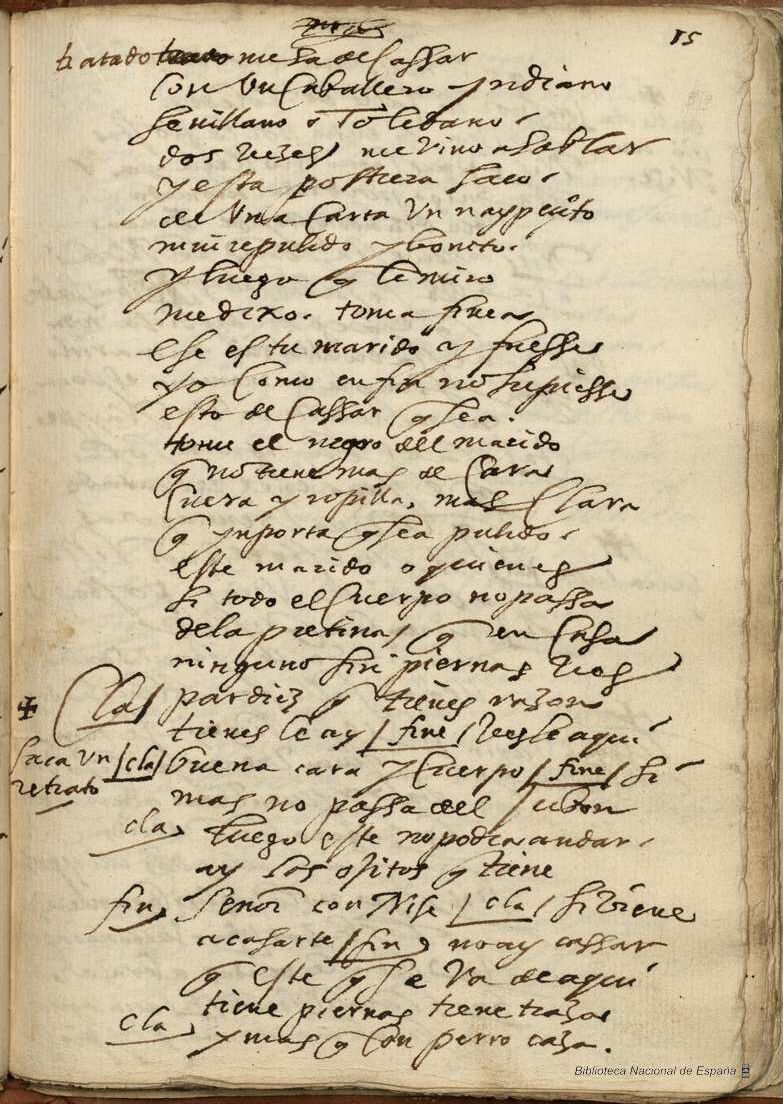 15
tratado me ha de cassar
con un caballero yndiano
sevillano o Toledano
dos vezes me vino a hablar
y esta postrera saco
de una carta un naypeçito
mui repulido y bonito
y luego q le miro
me dixo. toma finea
ese es tu marido y fuesse
yo como en fin no supiesse
esto de cassar q sea
tome el negro del marido
q no tiene mas de cara
cuera y ropilla, mas Clara
q ynporta q sea pulido
este marido o quien es
si todo el cuerpo no passa
de la pretina/ q en casa
ninguno sin piernas ves
cla/ pardiez q tienes razon
tienes le ay / fine / vesle aqui
saca un retrato
/cla/ buena cara y cuerpo / fine / si
mas no passa del jubon
cla luego este no podra andar
ay los ojitos q tiene
fin Señor con Nise / cla / si viene
a casarte / fin no ay cassar
q este q se va de aqui
tiene piernas tiene traza
cla y mas q con perro caza.
Biblioteca Nacional de España